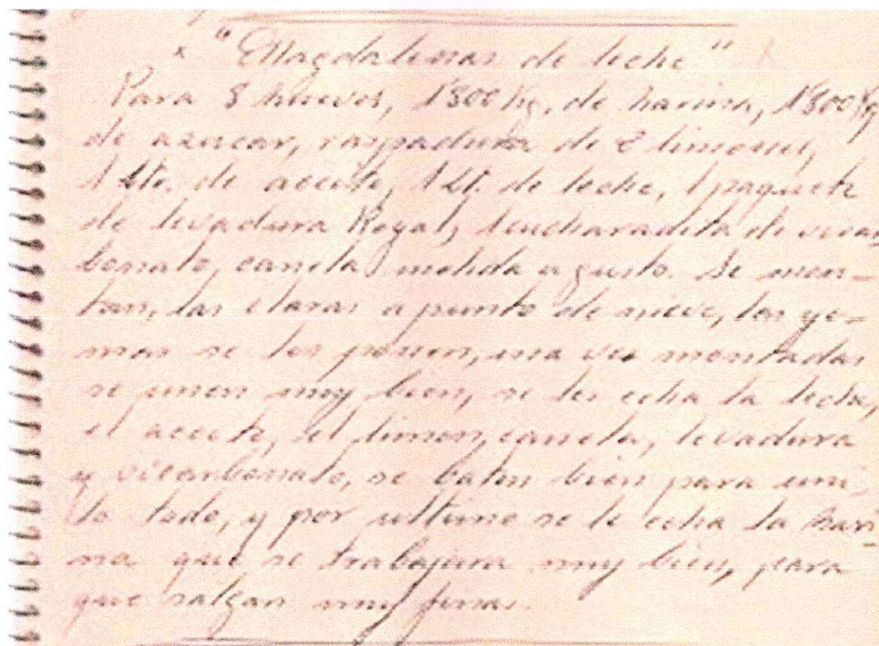 "Magdalenas de leche"
Para 8 huevos, 1800 Kg, de harina, 1800 Kg
de azucar, raspadura de 2 limones,
1 Lto. de aceite, 1 Lt. de leche, 1 paquete
de levadura Royal, 1 cucharadita de vicar
bonato, canela molida a gusto. Se mon-
tan, las claras a punto de nieve, las ye-
mas se les ponen, una vez montadas
se unen muy bien, se les echa la leche,
el aceite, el limon, canela, levadura
y vicarbonato, se baten bien para uni
lo todo, y por ultimo se le echa la hari-
na que se trabajara muy bien, para
que salgan muy finas.